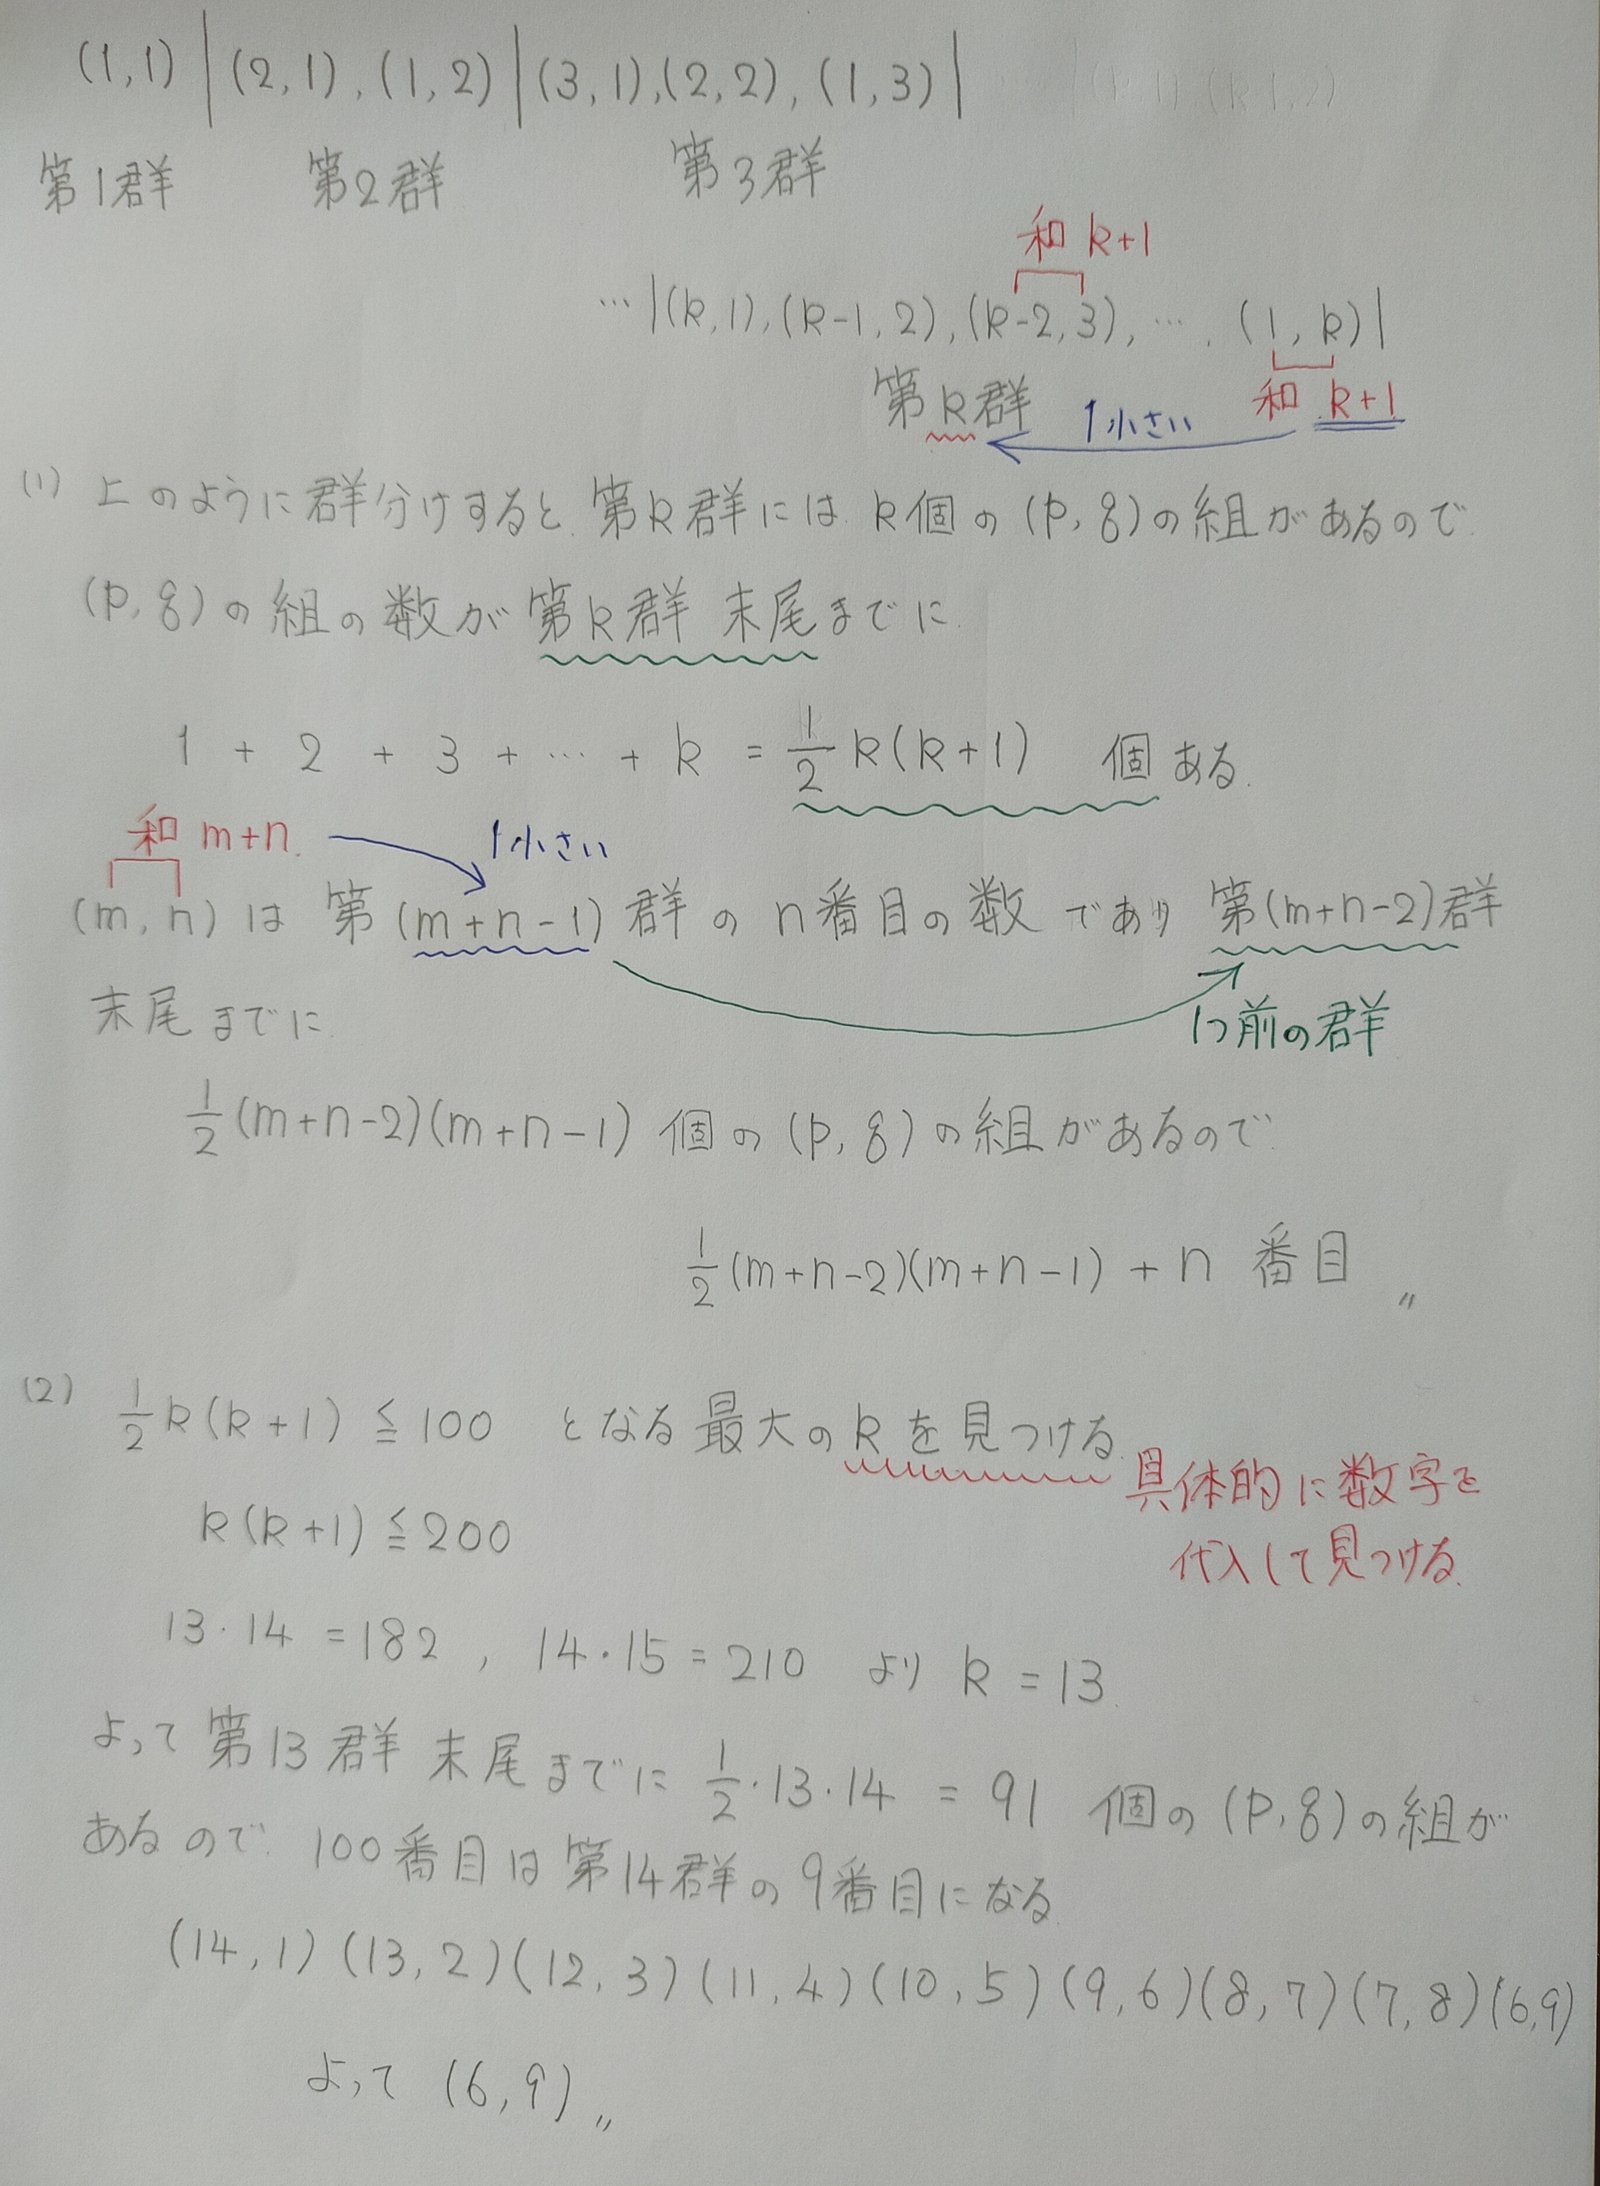 (1,1) | (2,1), (1,2) | (3,1), (2,2), (1,3) |
第1群 第2群 第3群
和 k+1
… | (k,1), (k-1,2), (k-2,3), …, (1,k) |
第k群 1小さい 和 k+1
(1) 上のように群分けすると 第k群には k個の(p,q)の組があるので
(p,q)の組の数が 第k群 末尾までに
1 + 2 + 3 + … + k = 1/2 k(k+1) 個ある.
和 m+n 1小さい
(m,n)は 第(m+n-1)群の n番目の数 であり 第(m+n-2)群
末尾までに 1つ前の群
1/2 (m+n-2)(m+n-1) 個の (p,q) の組があるので
1/2 (m+n-2)(m+n-1) + n 番目 〃
(2) 1/2 k(k+1) ≦ 100 となる最大のkを見つける
具体的に数字を
k(k+1) ≦ 200
代入して見つける.
13・14 = 182 , 14・15 = 210 より k = 13
よって 第13群 末尾までに 1/2・13・14 = 91 個の (p,q)の組が
あるので 100番目は 第14群の9番目になる
(14,1) (13,2) (12,3) (11,4) (10,5) (9,6) (8,7) (7,8) (6,9)
よって (6,9) 〃